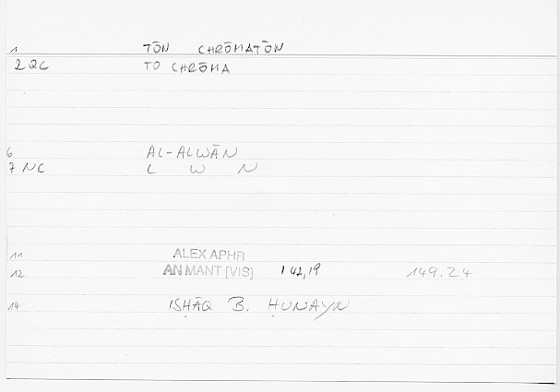 1 TŌN CHRŌMATŌN
2 QC TO CHRŌMA
6 AL-ALWĀN
7 NC L W N
11 ALEX APHR
12 AN MANT [VIS] 142,19 149.24
14 ISḤĀQ B. ḤUNAYN